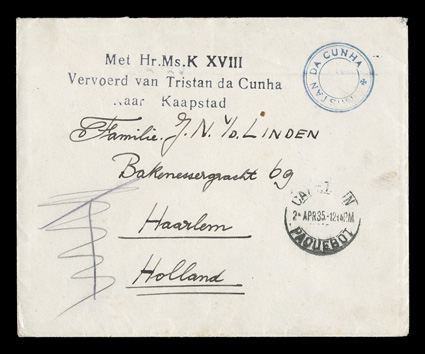 Met Hr.Ms.K XVIII
Vervoerd van Tristan da Cunha
Naar Kaapstad
TRISTAN DA CUNHA
Familie J. N. v/d. LINDEN
Bakenessergracht 69
Haarlem
Holland
APR 35
PAQUEBOT